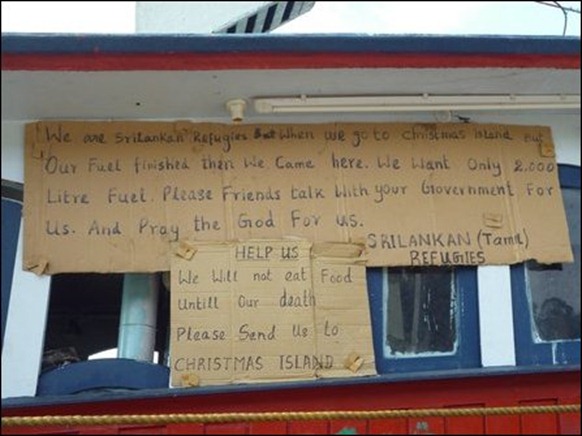 We are Srilankan Refugies But When we go to Christmas Island But
Our Fuel finished then We Came here. We Want Only 2.000
Litre Fuel. Please Friends talk With your Government For
Us. And Pray the God For us.
SRILANKAN (Tamil)
REFUGIES
HELP US
We Will not eat Food
Untill Our death
Please Send Us to
CHRISTMAS ISLAND